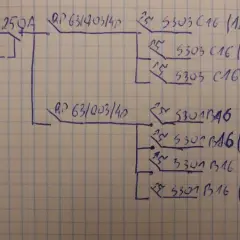 250A
ΔP 63/003/4P
S303 C16 (1
S303 C16
S303 C16
ΔP 63/003/4P
S301 B16
S301 B16 (
S301 B16
S301 B16